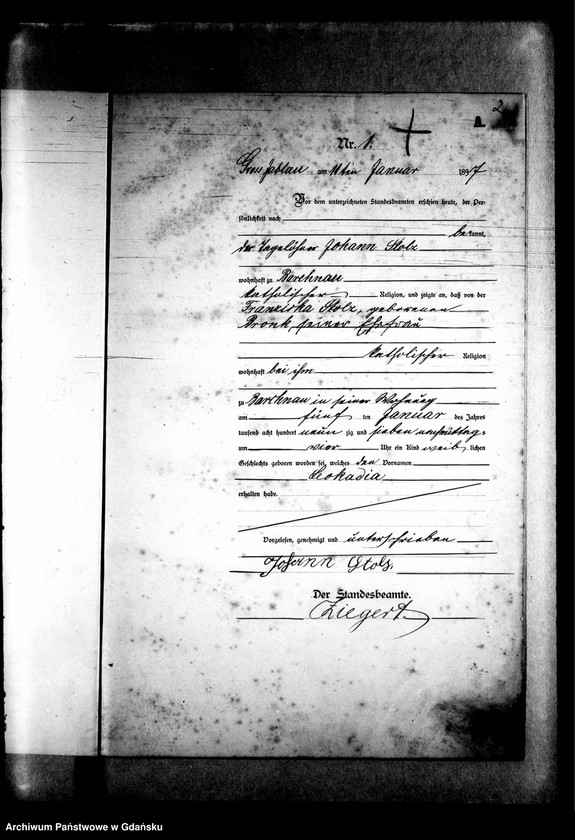 2
A.
Nr. 1.
Gross Jablau am 11ten Januar 1897
Vor dem unterzeichneten Standesbeamten erschien heute, der Per-
sönlichkeit nach
bekannt,
der Tagelöhner Johann Stolz
wohnhaft zu Barchnau
katholischer Religion, und zeigte an, daß von der
Franziska Stolz, geborenen
Bronk, seiner Ehefrau
katholischer Religion
wohnhaft bei ihm
zu Barchnau in seiner Wohnung
am fünf ten Januar des Jahres
tausend acht hundert neun zig und sieben nachmittags
um vier Uhr ein Kind weib lichen
Geschlechts geboren worden sei, welches den Vornamen
Leokadia
erhalten habe.
Vorgelesen, genehmigt und unterschrieben
Johann Stolz.
Der Standesbeamte.
Ziegert
Archiwum Państwowe w Gdańsku